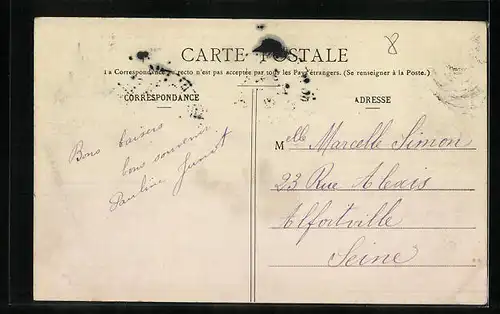 8
CARTE POSTALE
La Correspondance au recto n'est pas acceptée par tous les Pays étrangers. (Se renseigner à la Poste.)
CORRESPONDANCE
Bons baisers
bons souvenirs
Pauline
ADRESSE
Melle Marcelle Simon
23 Rue Alexis
Alfortville
Seine